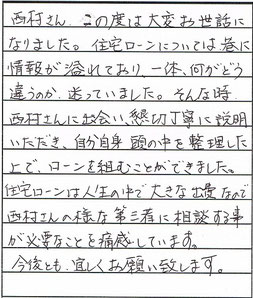 西村さん、この度は大変お世話に
なりました。住宅ローンについては巷に
情報が溢れており、一体、何がどう
違うのか、迷っていました。そんな時、
西村さんに出会い、懇切丁寧に説明
いただき、自分自身 頭の中を整理した
上で、ローンを組むことができました。
住宅ローンは人生の中で大きな出費なので
西村さんの様な第三者に相談する事
が必要なことを痛感しています。
今後とも、宜しくお願い致します。